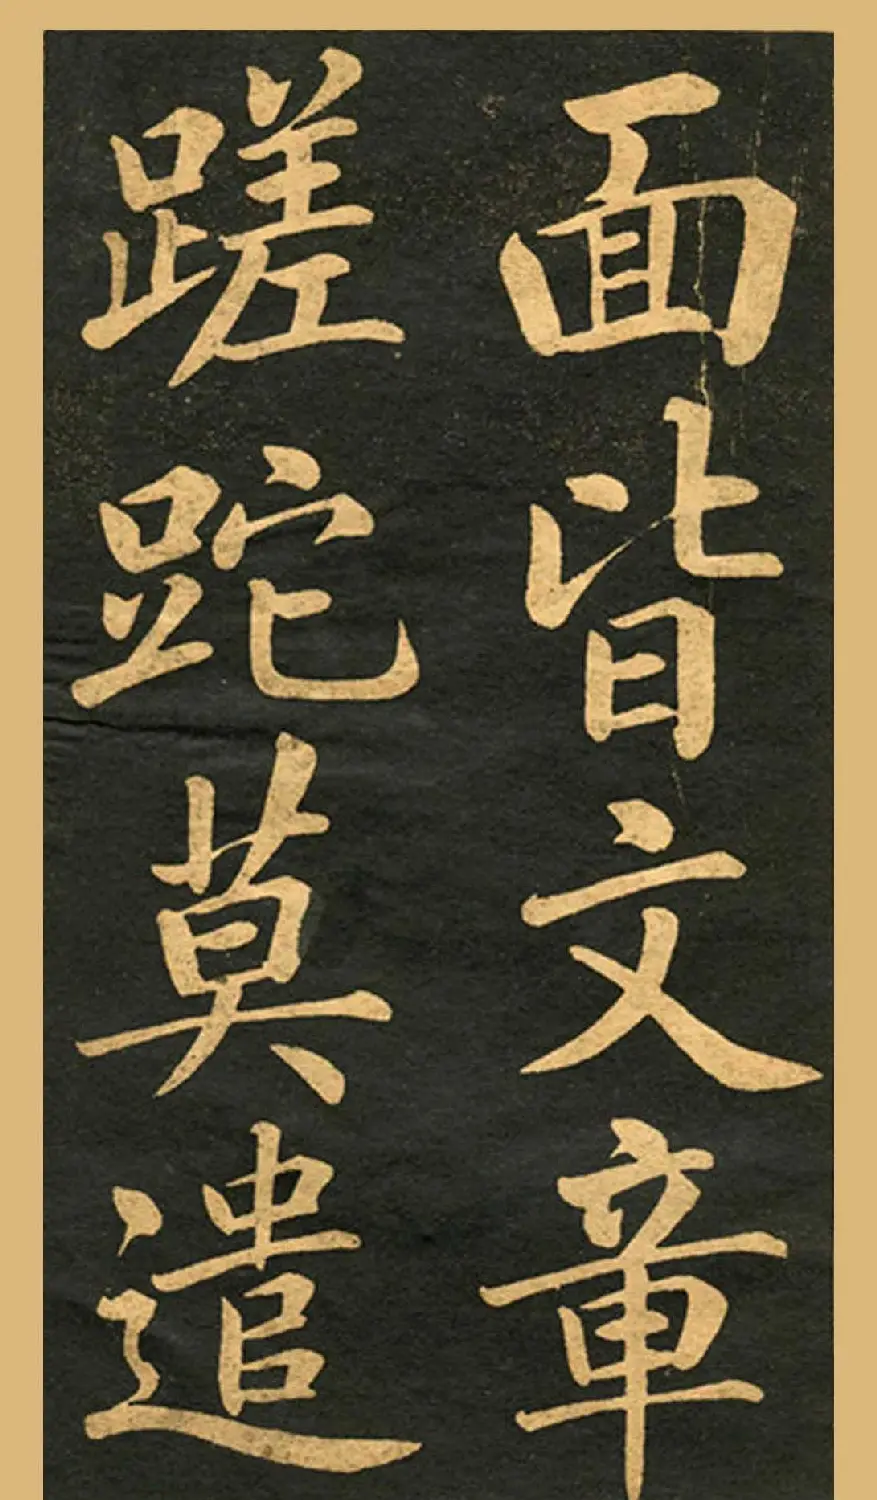 面皆文章
蹉跎莫遣